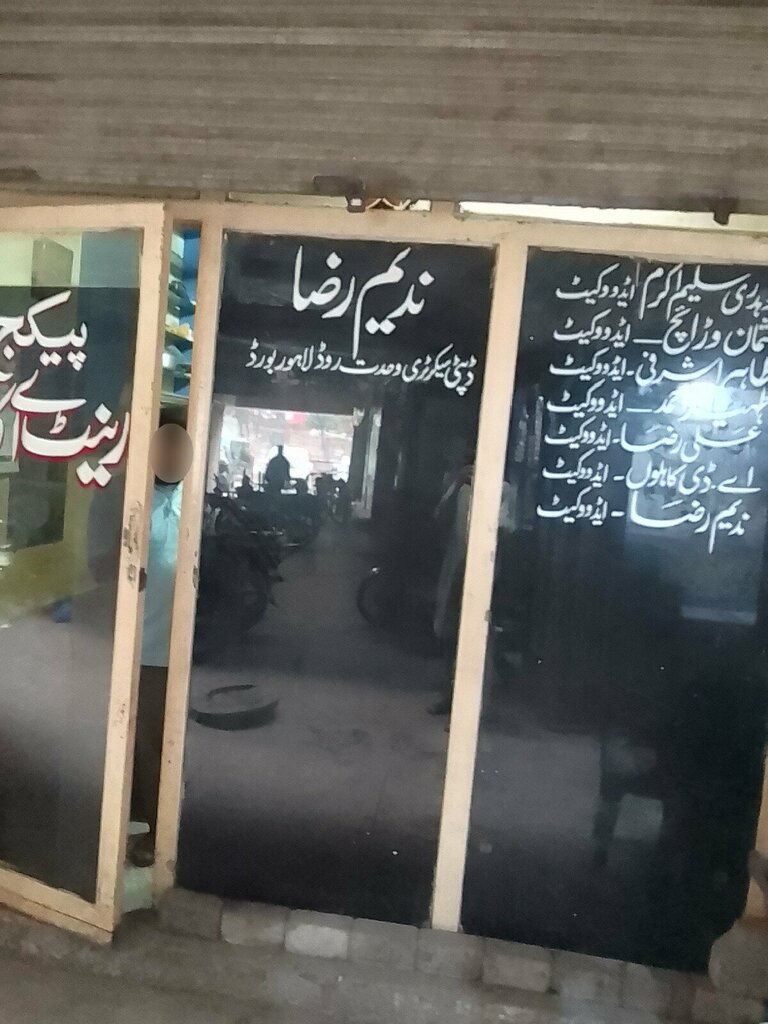 ندیم رضا
ڈپٹی سیکرٹری وحدت روڈ لاہور بورڈ
سلیم اکرم ایڈووکیٹ
وڑائچ - ایڈووکیٹ
اشرفی - ایڈووکیٹ
ایڈووکیٹ
علی رضا - ایڈووکیٹ
اے - ڈی کاہلوں - ایڈووکیٹ
ندیم رضا - ایڈووکیٹ
پیکج
رینٹ اے